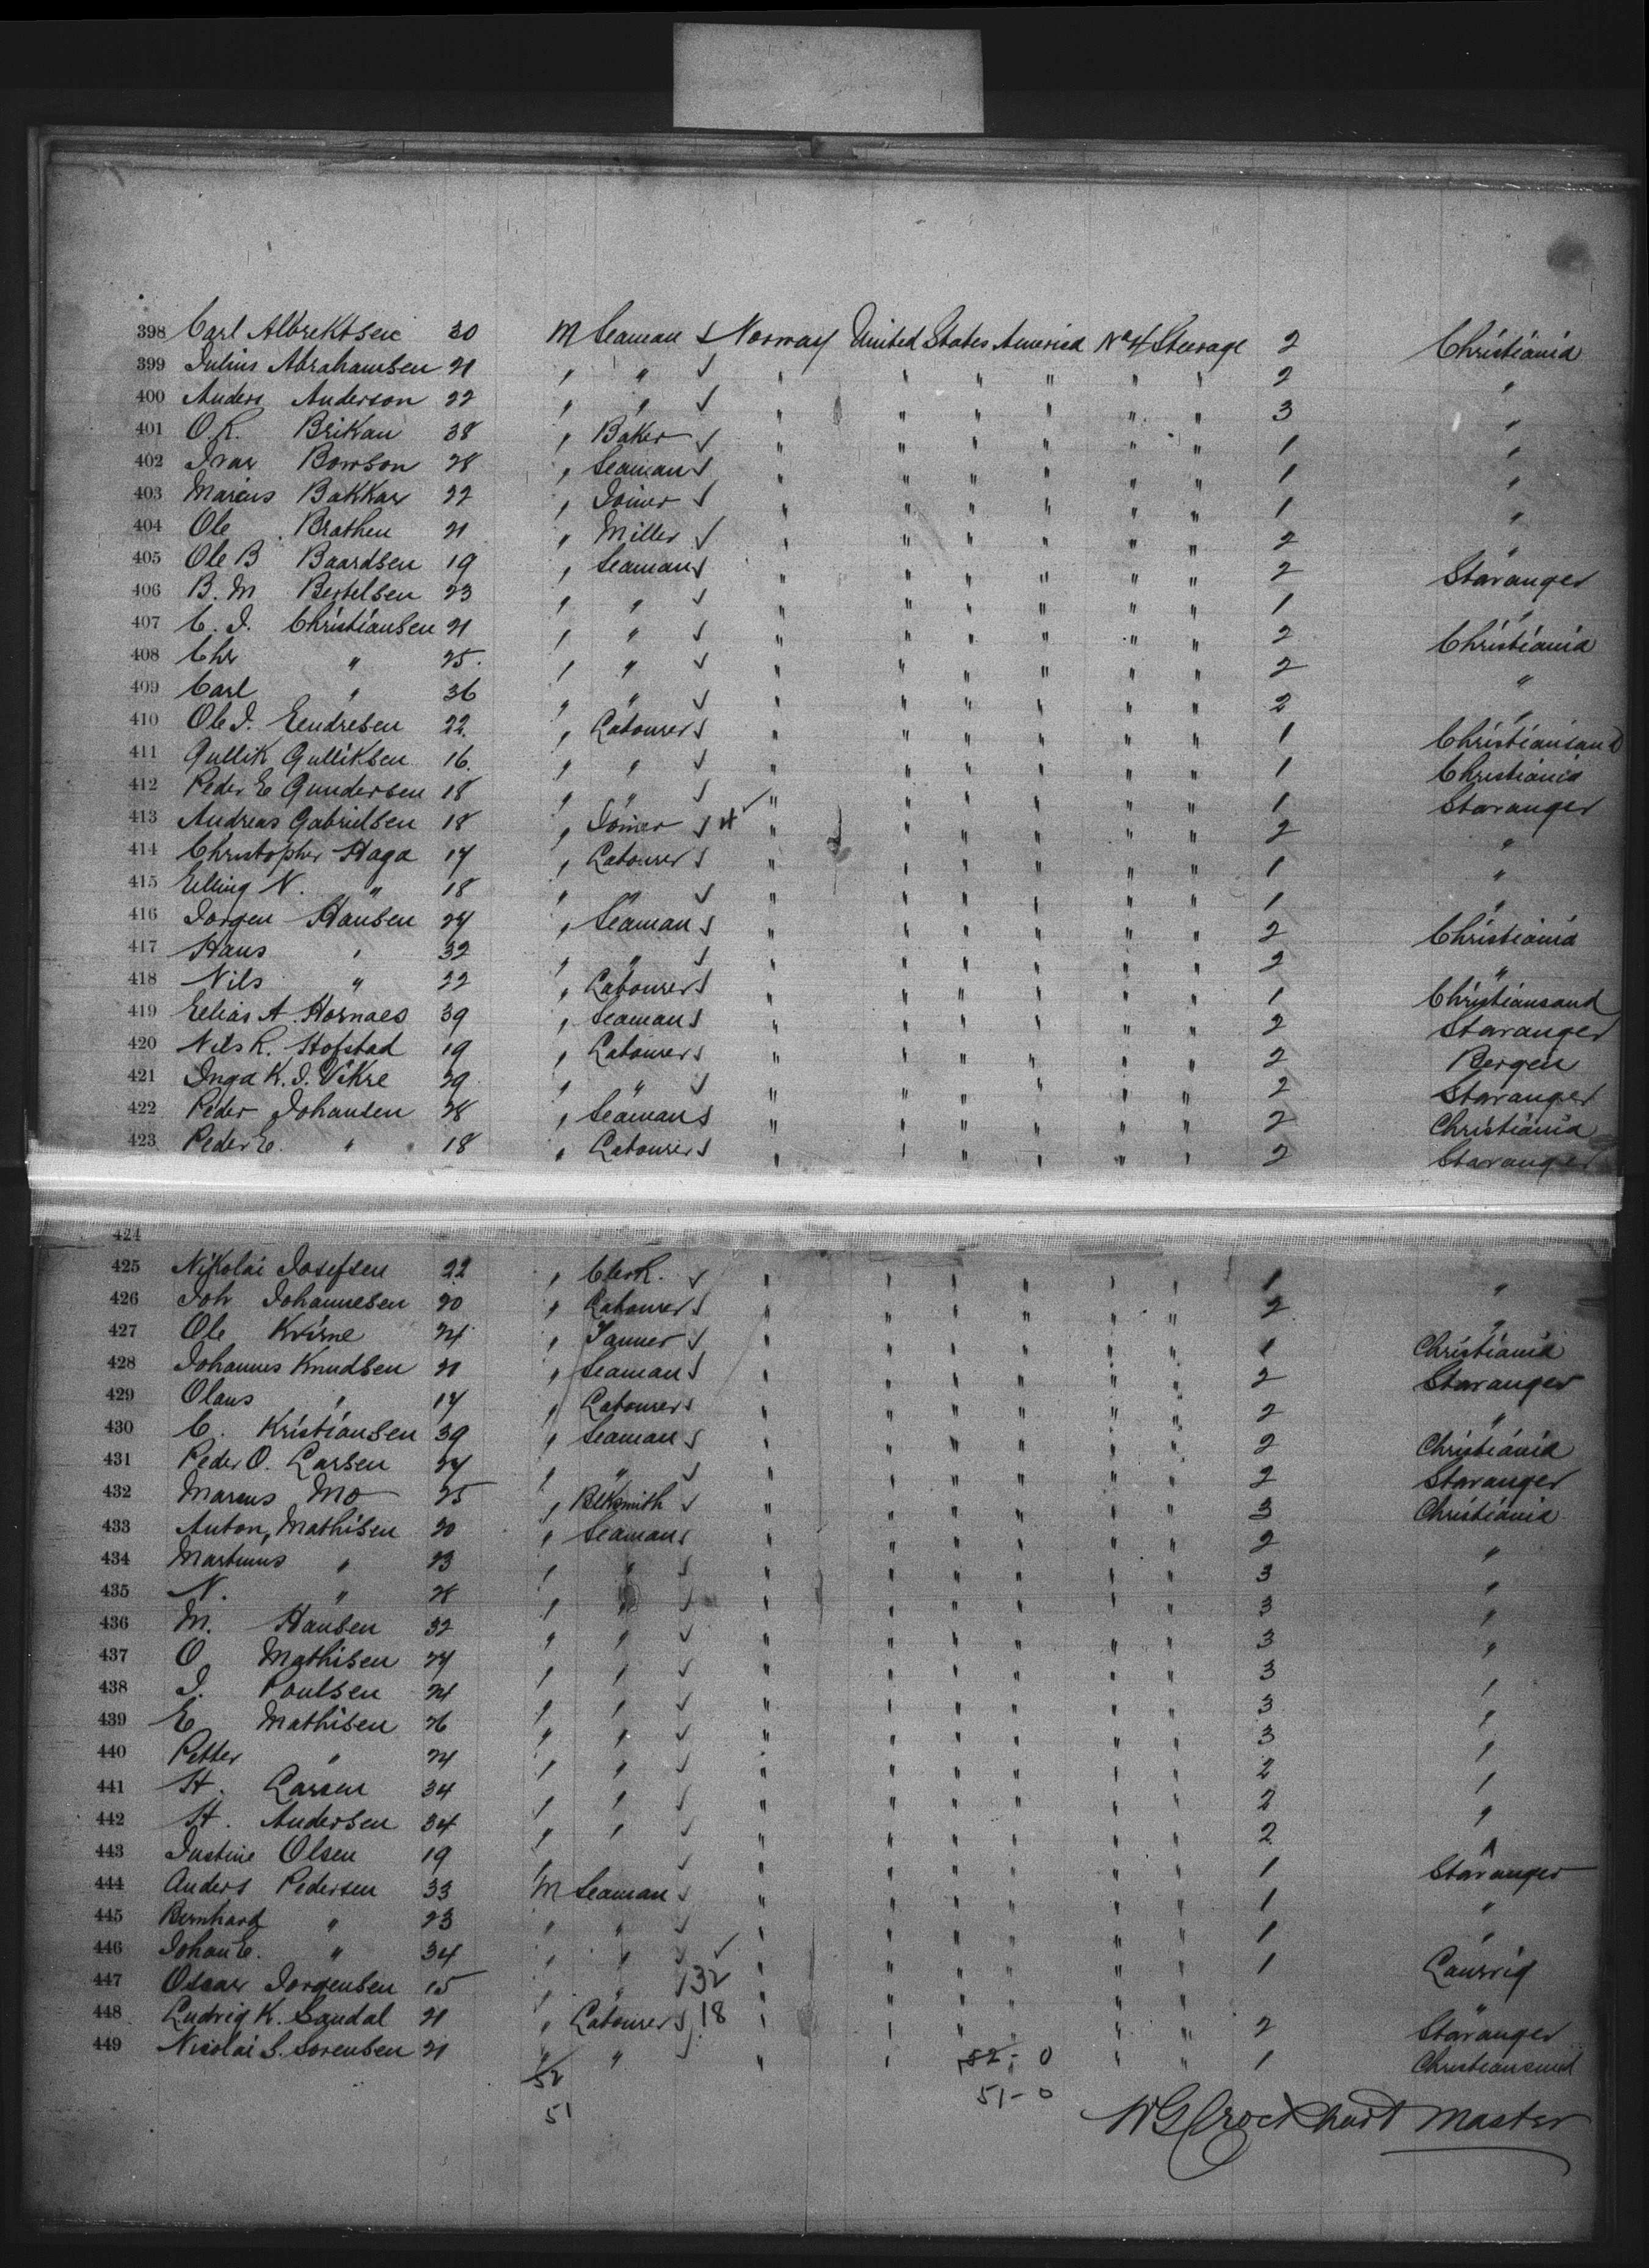 398 Carl Albrektsen 30 M Seaman ✓ Norway United States America No 4 Steerage 2 Christiania
399 Julius Abrahamsen 21 " " ✓ " " " " " " 2 "
400 Anders Anderson 22 " " ✓ " " " " " " 3 "
401 O.K. Brikan 38 " Baker ✓ " " " " " " 1 "
402 Ivar Bowson 28 " Seaman ✓ " " " " " " 1 "
403 Marius Bakkar 22 " Joiner ✓ " " " " " " 1 "
404 Ole Brathen 21 " Miller ✓ " " " " " " 2 "
405 Ole B Baardsen 19 " Seaman ✓ " " " " " " 2 Stavanger
406 B. M Bertelsen 23 " " ✓ " " " " " " 1 "
407 C. J. Christiansen 21 " " ✓ " " " " " " 2 Christiania
408 Chr " 25 " " ✓ " " " " " " 2 "
409 Carl " 36 " " ✓ " " " " " " 2 "
410 Ole J. Eendresen 22 " Labourer ✓ " " " " " " 1 Christiansand
411 Gullik Gulliksen 16 " " ✓ " " " " " " 1 Christiania
412 Peder E Gundersen 18 " " ✓ " " " " " " 1 Stavanger
413 Andreas Gabrielsen 18 " Joiner ✓ 4 ✓ " " " " " " 2 "
414 Christopher Haga 17 " Labourer ✓ " " " " " " 1 "
415 Elling N. " 18 " " ✓ " " " " " " 1 "
416 Jorgen Hansen 27 " Seaman ✓ " " " " " " 2 Christiania
417 Hans " 32 " " ✓ " " " " " " 2 "
418 Nils " 22 " Labourer ✓ " " " " " " 1 Christiansand
419 Eelias A. Hornaes 39 " Seaman ✓ " " " " " " 2 Stavanger
420 Nils R. Hofstad 19 " Labourer ✓ " " " " " " 2 Bergen
421 Inga K. J. Vikre 29 " " ✓ " " " " " " 2 Stavanger
422 Peder Johansen 28 " Seaman ✓ " " " " " " 2 Christiania
423 Peder E. " 18 " Labourer ✓ " " " " " " 2 Stavanger
424
425 Nikolai Josefsen 22 " Clerk. ✓ " " " " " " 1 "
426 Joh Johannesen 20 " Labourer ✓ " " " " " " 2 "
427 Ole Kvirne 24 " Tanner ✓ " " " " " " 1 Christiania
428 Johannes Knudsen 21 " Seaman ✓ " " " " " " 2 Stavanger
429 Olaus " 17 " Labourer ✓ " " " " " " 2 "
430 C. Kristiansen 39 " Seaman ✓ " " " " " " 2 Christiania
431 Peder O. Larsen 27 " " ✓ " " " " " " 2 Stavanger
432 Marcus Mo 25 " Blksmith ✓ " " " " " " 3 Christiania
433 Anton Mathisen 20 " Seaman ✓ " " " " " " 2 "
434 Martinus " 23 " " ✓ " " " " " " 3 "
435 N. " 28 " " ✓ " " " " " " 3 "
436 M. Hansen 32 " " ✓ " " " " " " 3 "
437 O Mathisen 27 " " ✓ " " " " " " 3 "
438 J. Poulsen 24 " " ✓ " " " " " " 3 "
439 E Mathisen 26 " " ✓ " " " " " " 3 "
440 Petter " 24 " " ✓ " " " " " " 2 "
441 H. Larsen 34 " " ✓ " " " " " " 2 "
442 H. Andersen 34 " " ✓ " " " " " " 2 "
443 Justine Olsen 19 ✓ " " " " " " 1 Stavanger
444 Anders Pedersen 33 M Seaman ✓ " " " " " " 1 "
445 Bernhard " 23 " " ✓ " " " " " " 1 "
446 Johan E. " 34 " " ✓ ✓ " " " " " " 1 Laurvig
447 Oscar Jorgensen 15 " " ✓ 32 " " " " " " "
448 Ludvig K. Sandal 21 " Labourer ✓ 18 " " " " " " 2 Stavanger
449 Nicolai S. Sorensen 21 " " " " " " 1 Christiansund
52 52 - 0
51 51 - 0
W G Crockhart Master